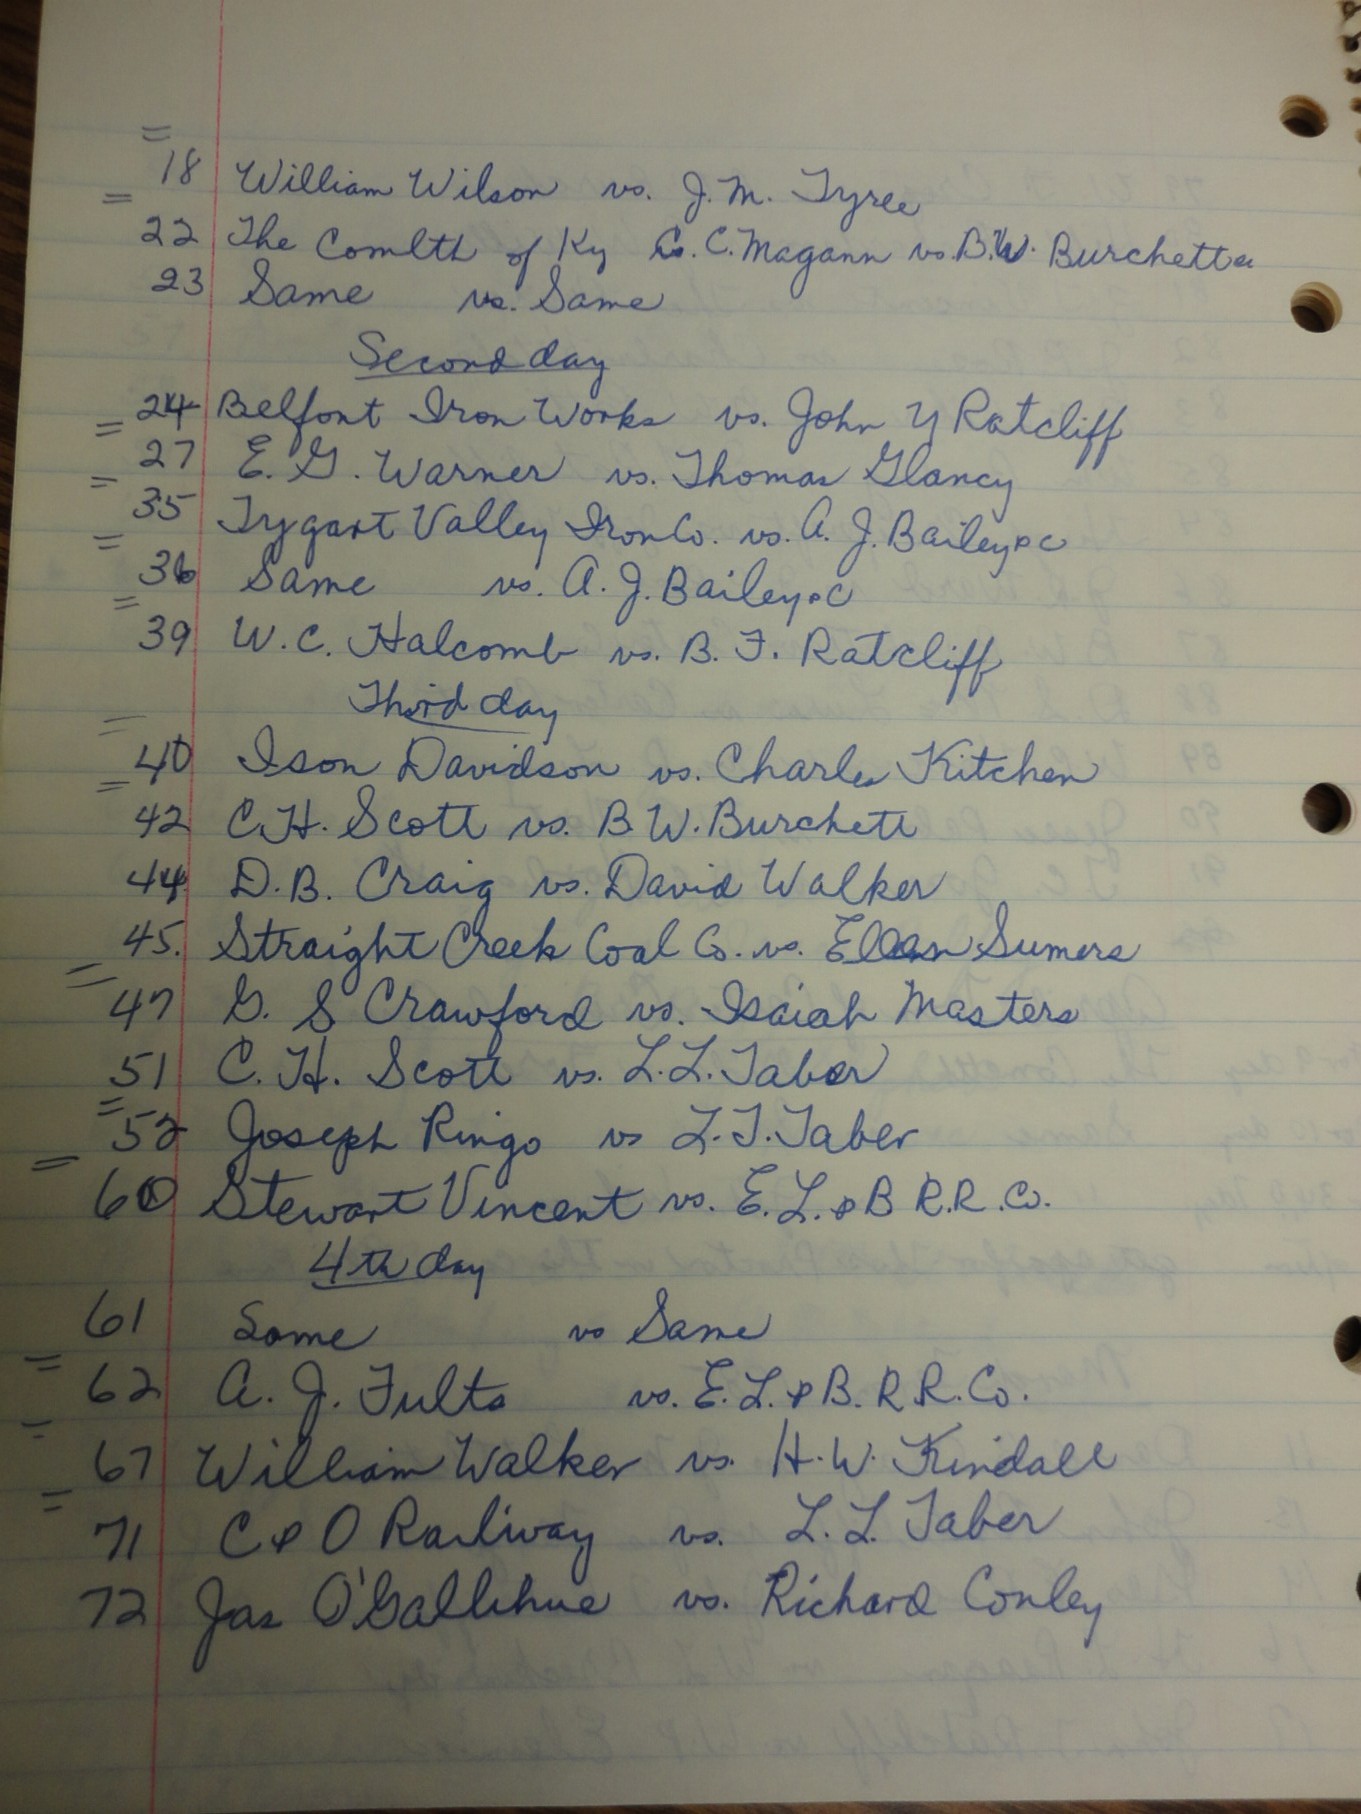 =
18 William Wilson vs. J. M. Tyree
=
22 The Comlth of Ky Co. C. Magann vs. B.W. Burchetta
23 Same vs. Same
Second day
24 Belfont Iron Works vs. John Y Ratcliff
=
27 E. G. Warner vs. Thomas Glancy
=
35 Tygart Valley Iron Co. vs. A. J. Bailey &c
=
36 Same vs. A. J. Bailey &c
=
39 W. C. Halcomb vs. B. F. Ratcliff
Third day
=
40 Ison Davidson vs. Charles Kitchen
=
42 C.H. Scott vs. B W. Burchett
44 D. B. Craig vs. David Walker
45. Straight Creek Coal Co. vs. Ellen Sumers
=
47 G. S Crawford vs. Isaiah Masters
51 C. H. Scott vs. L. L. Taber
=
52 Joseph Ringo vs L. T. Taber
=
60 Stewart Vincent vs. E. L. & B R.R. Co.
4th day
61 Same vs Same
=
62 A. J. Fults vs. E. L. & B. R R. Co.
=
67 William Walker vs. H. W. Kindall
=
71 C & O Railway vs. L. L. Taber
72 Jas O'Gallihue vs. Richard Conley